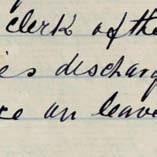 clerk of the
es discharg
ce on leave